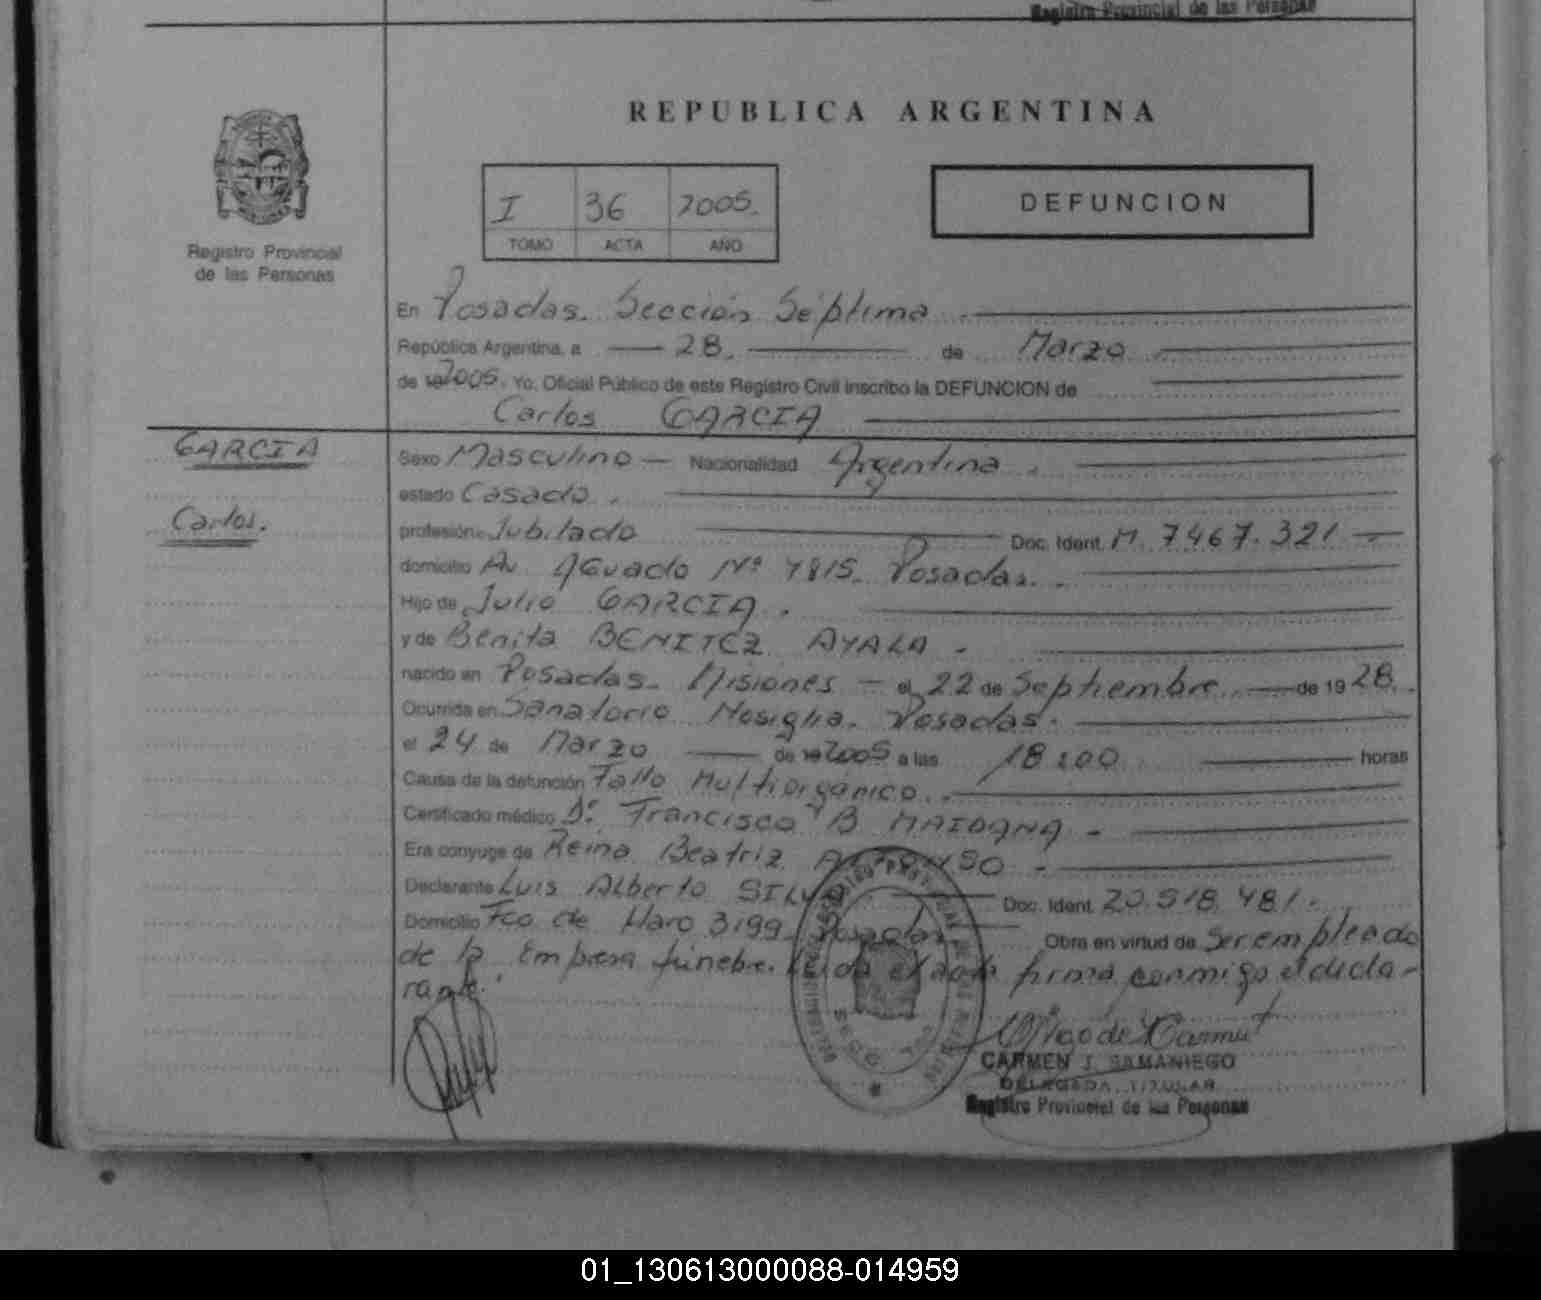 Registro Provincial de las Personas
REPUBLICA ARGENTINA
I 36 2005.
TOMO ACTA AÑO
DEFUNCION
Registro Provincial
de las Personas
En Posadas. Sección Séptima
República Argentina, a 28. de Marzo
de 2005. Yo, Oficial Público de este Registro Civil inscribo la DEFUNCION de
Carlos GARCIA
GARCIA
Carlos.
Sexo Masculino Nacionalidad Argentina.
estado Casado.
profesión Jubilado Doc. Ident. M. 7467.321
domicilio Av. Aguado Nº 4815. Posadas.
Hijo de Julio GARCIA.
y de Benita BENITEZ AYALA.
nacido en Posadas. Misiones el 22 de Septiembre de 1928.
Ocurrida en Sanatorio Nosiglia. Posadas.
el 24 de Marzo de 2005 a las 18:00 horas
Causa de la defunción Fallo Multiorgánico.
Certificado médico Dr. Francisco B MAIDANA
Era conyuge de Reina Beatriz
Declarante Luis Alberto SILVA Doc. Ident. 20.518.481.
Domicilio Fco. de Haro 3199. Posadas Obra en virtud de Ser empleado
de la Empresa fúnebre. Leida el acta firma conmigo el decla-
rante.
CARMEN J. SAMANIEGO
DELEGADA TITULAR
Registro Provincial de las Personas
01_130613000088-014959